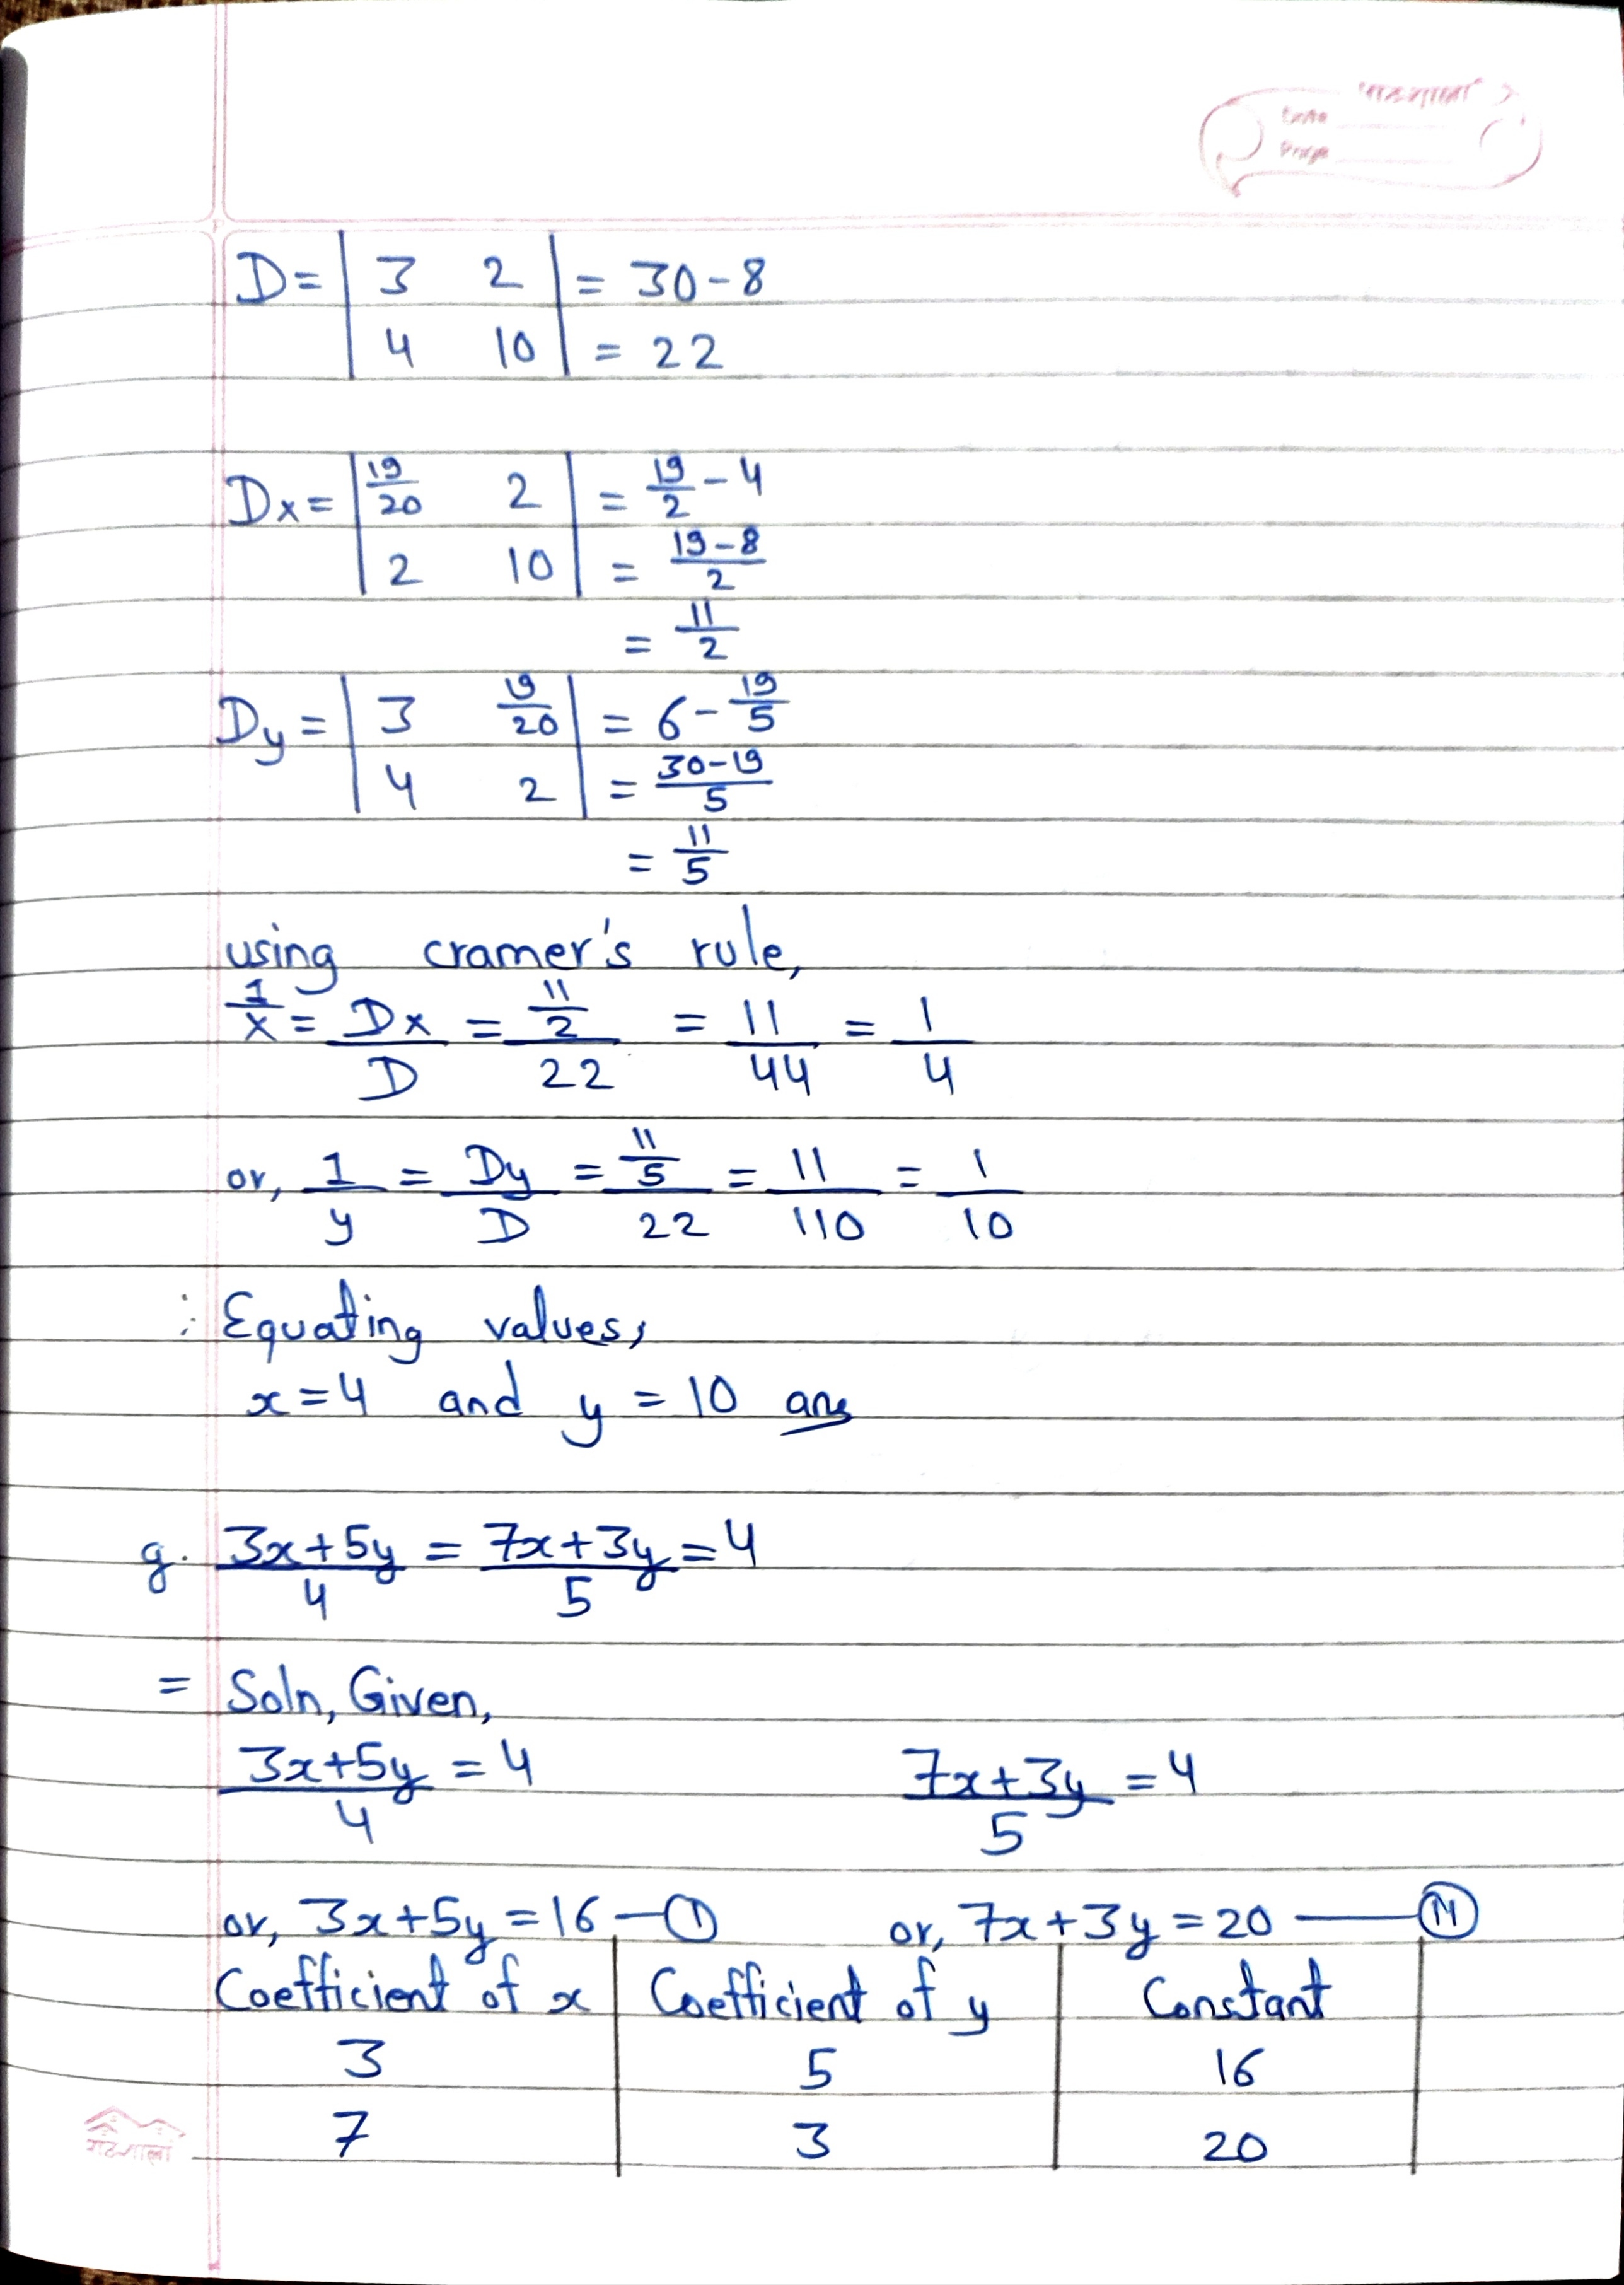 पाठशाला
Date
Page
D = | 3 2 | = 30 - 8
| 4 10 | = 22
Dx = | 19/20 2 | = 19/2 - 4
| 2 10 | = (19-8)/2
= 11/2
Dy = | 3 19/20 | = 6 - 19/5
| 4 2 | = (30-19)/5
= 11/5
using cramer's rule,
1/x = Dx/D = (11/2)/22 = 11/44 = 1/4
or, 1/y = Dy/D = (11/5)/22 = 11/110 = 1/10
: Equating values,
x = 4 and y = 10 ans
g. (3x+5y)/4 = (7x+3y)/5 = 4
= Soln, Given,
(3x+5y)/4 = 4 (7x+3y)/5 = 4
or, 3x+5y = 16 — (I) or, 7x+3y = 20 — (II)
Coefficient of x | Coefficient of y | Constant
3 | 5 | 16
7 | 3 | 20
पाठशाला